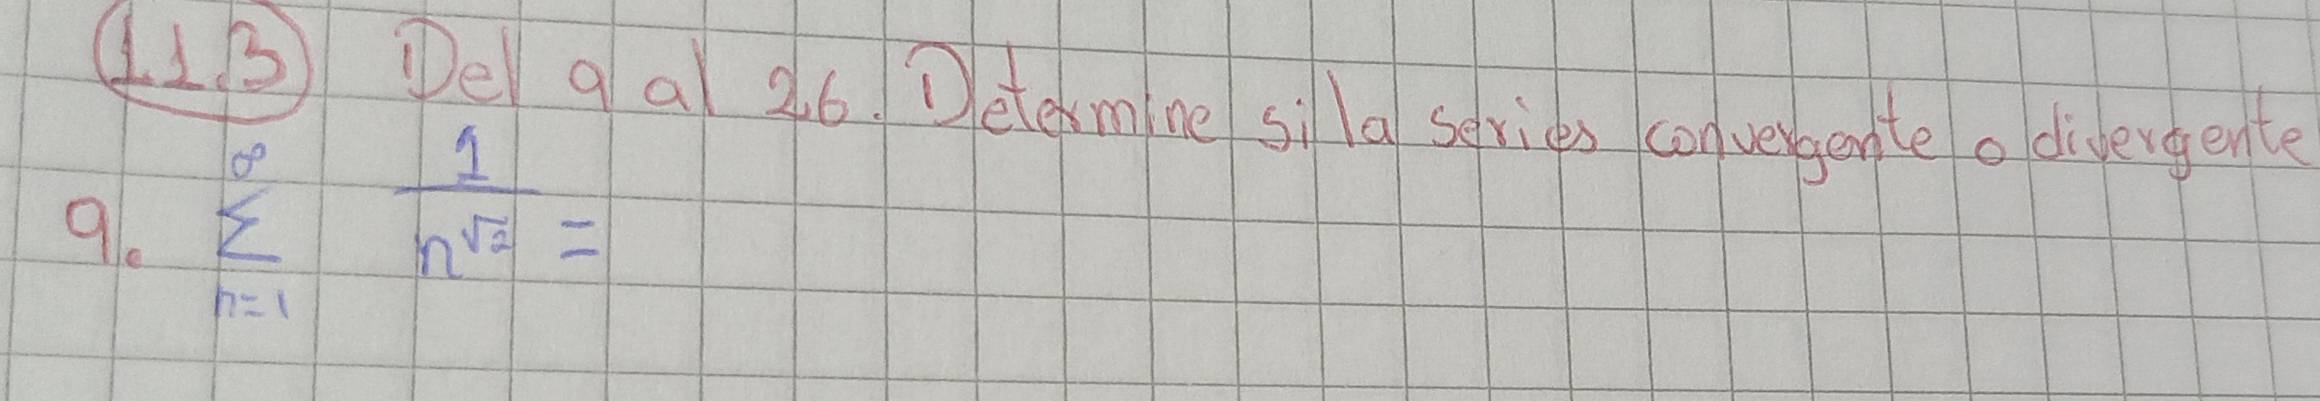 11.3 Del 9 al 26. Determine si la series convergente o divergente
9. ∞ Σ n=1 1/n^√2 =